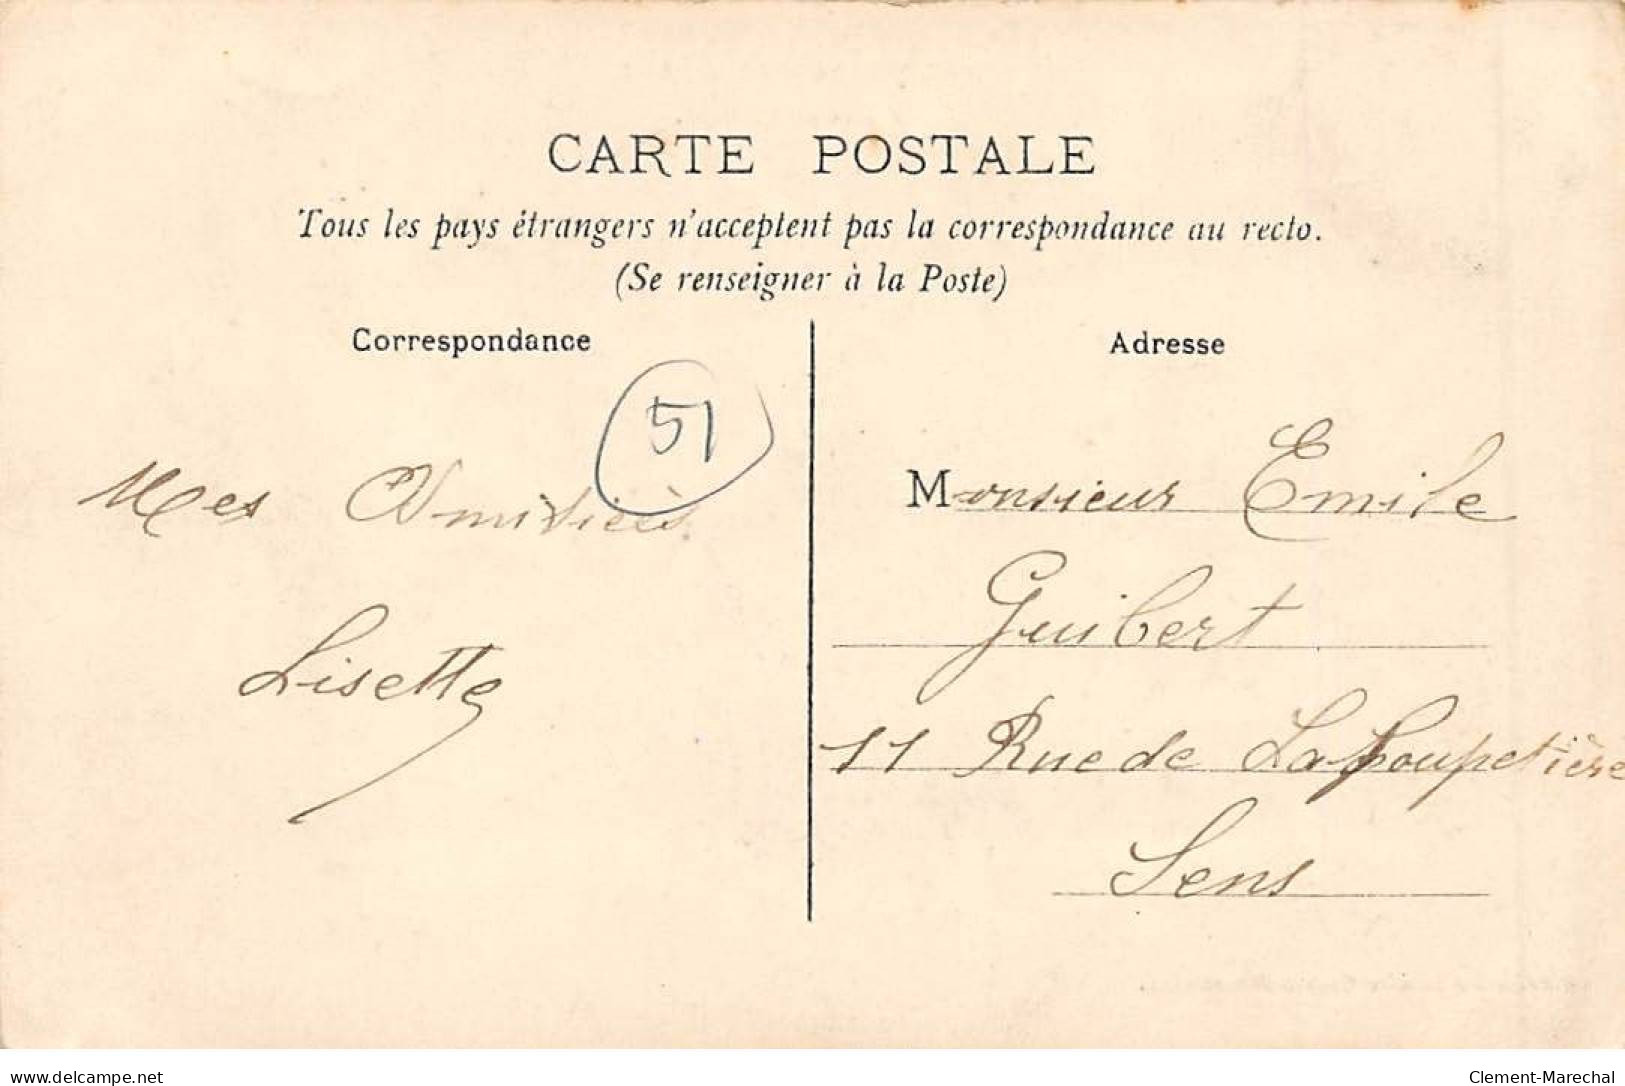 CARTE POSTALE
Tous les pays étrangers n'acceptent pas la correspondance au recto.
(Se renseigner à la Poste)
Correspondance
51
Mes Amitiées
Lisette
Adresse
Monsieur Emile
Guibert
11 Rue de La
Sens
delcampe.net
Clement-Marechal